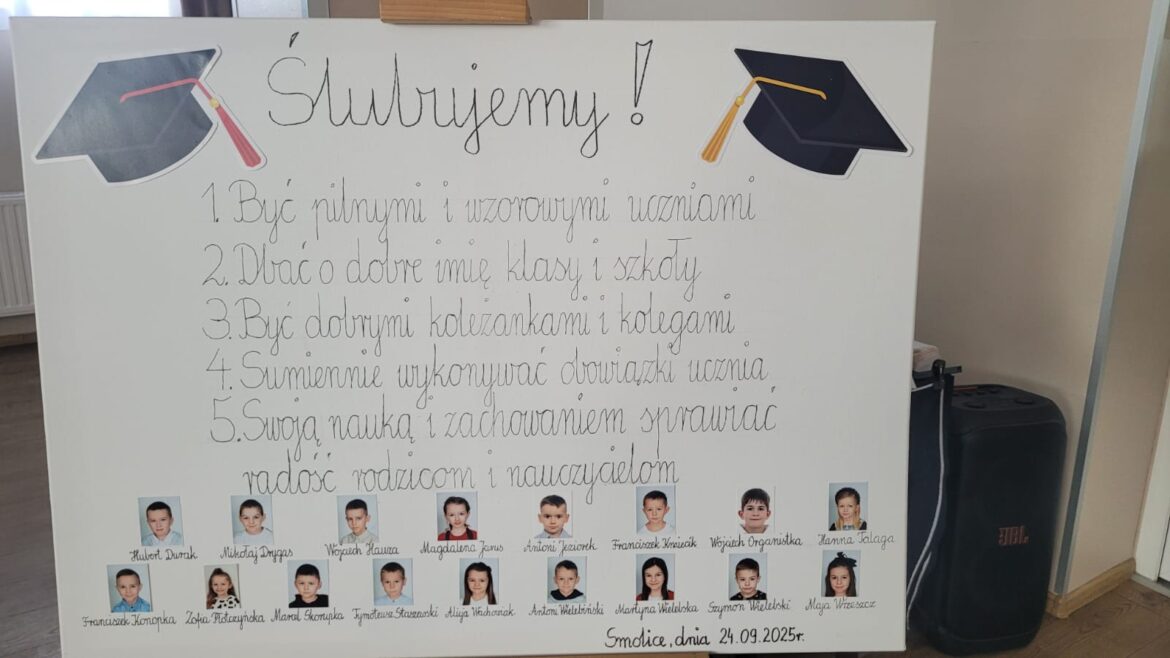 Ślubujemy!
1. Być pilnymi i wzorowymi uczniami
2. Dbać o dobre imię klasy i szkoły
3. Być dobrymi koleżankami i kolegami
4. Sumiennie wykonywać obowiązki ucznia
5. Swoją nauką i zachowaniem sprawiać
radość rodzicom i nauczycielom
Hubert Durak Mikołaj Drygas Wojciech Hauza Magdalena Janus Antoni Jeziorek Franciszek Wojciech Organistka Hanna Talaga
Franciszek Konopka Zofia Marcel Skorupka Tymoteusz Staszewski Alicja Antoni Wielebiński Martyna Wielebska Szymon Wielebski Maja Wrzeszcz
Smolice, dnia 24.09.2025r.
JBL